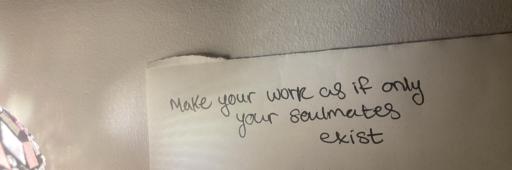 Make your work as if only
your soulmates
exist